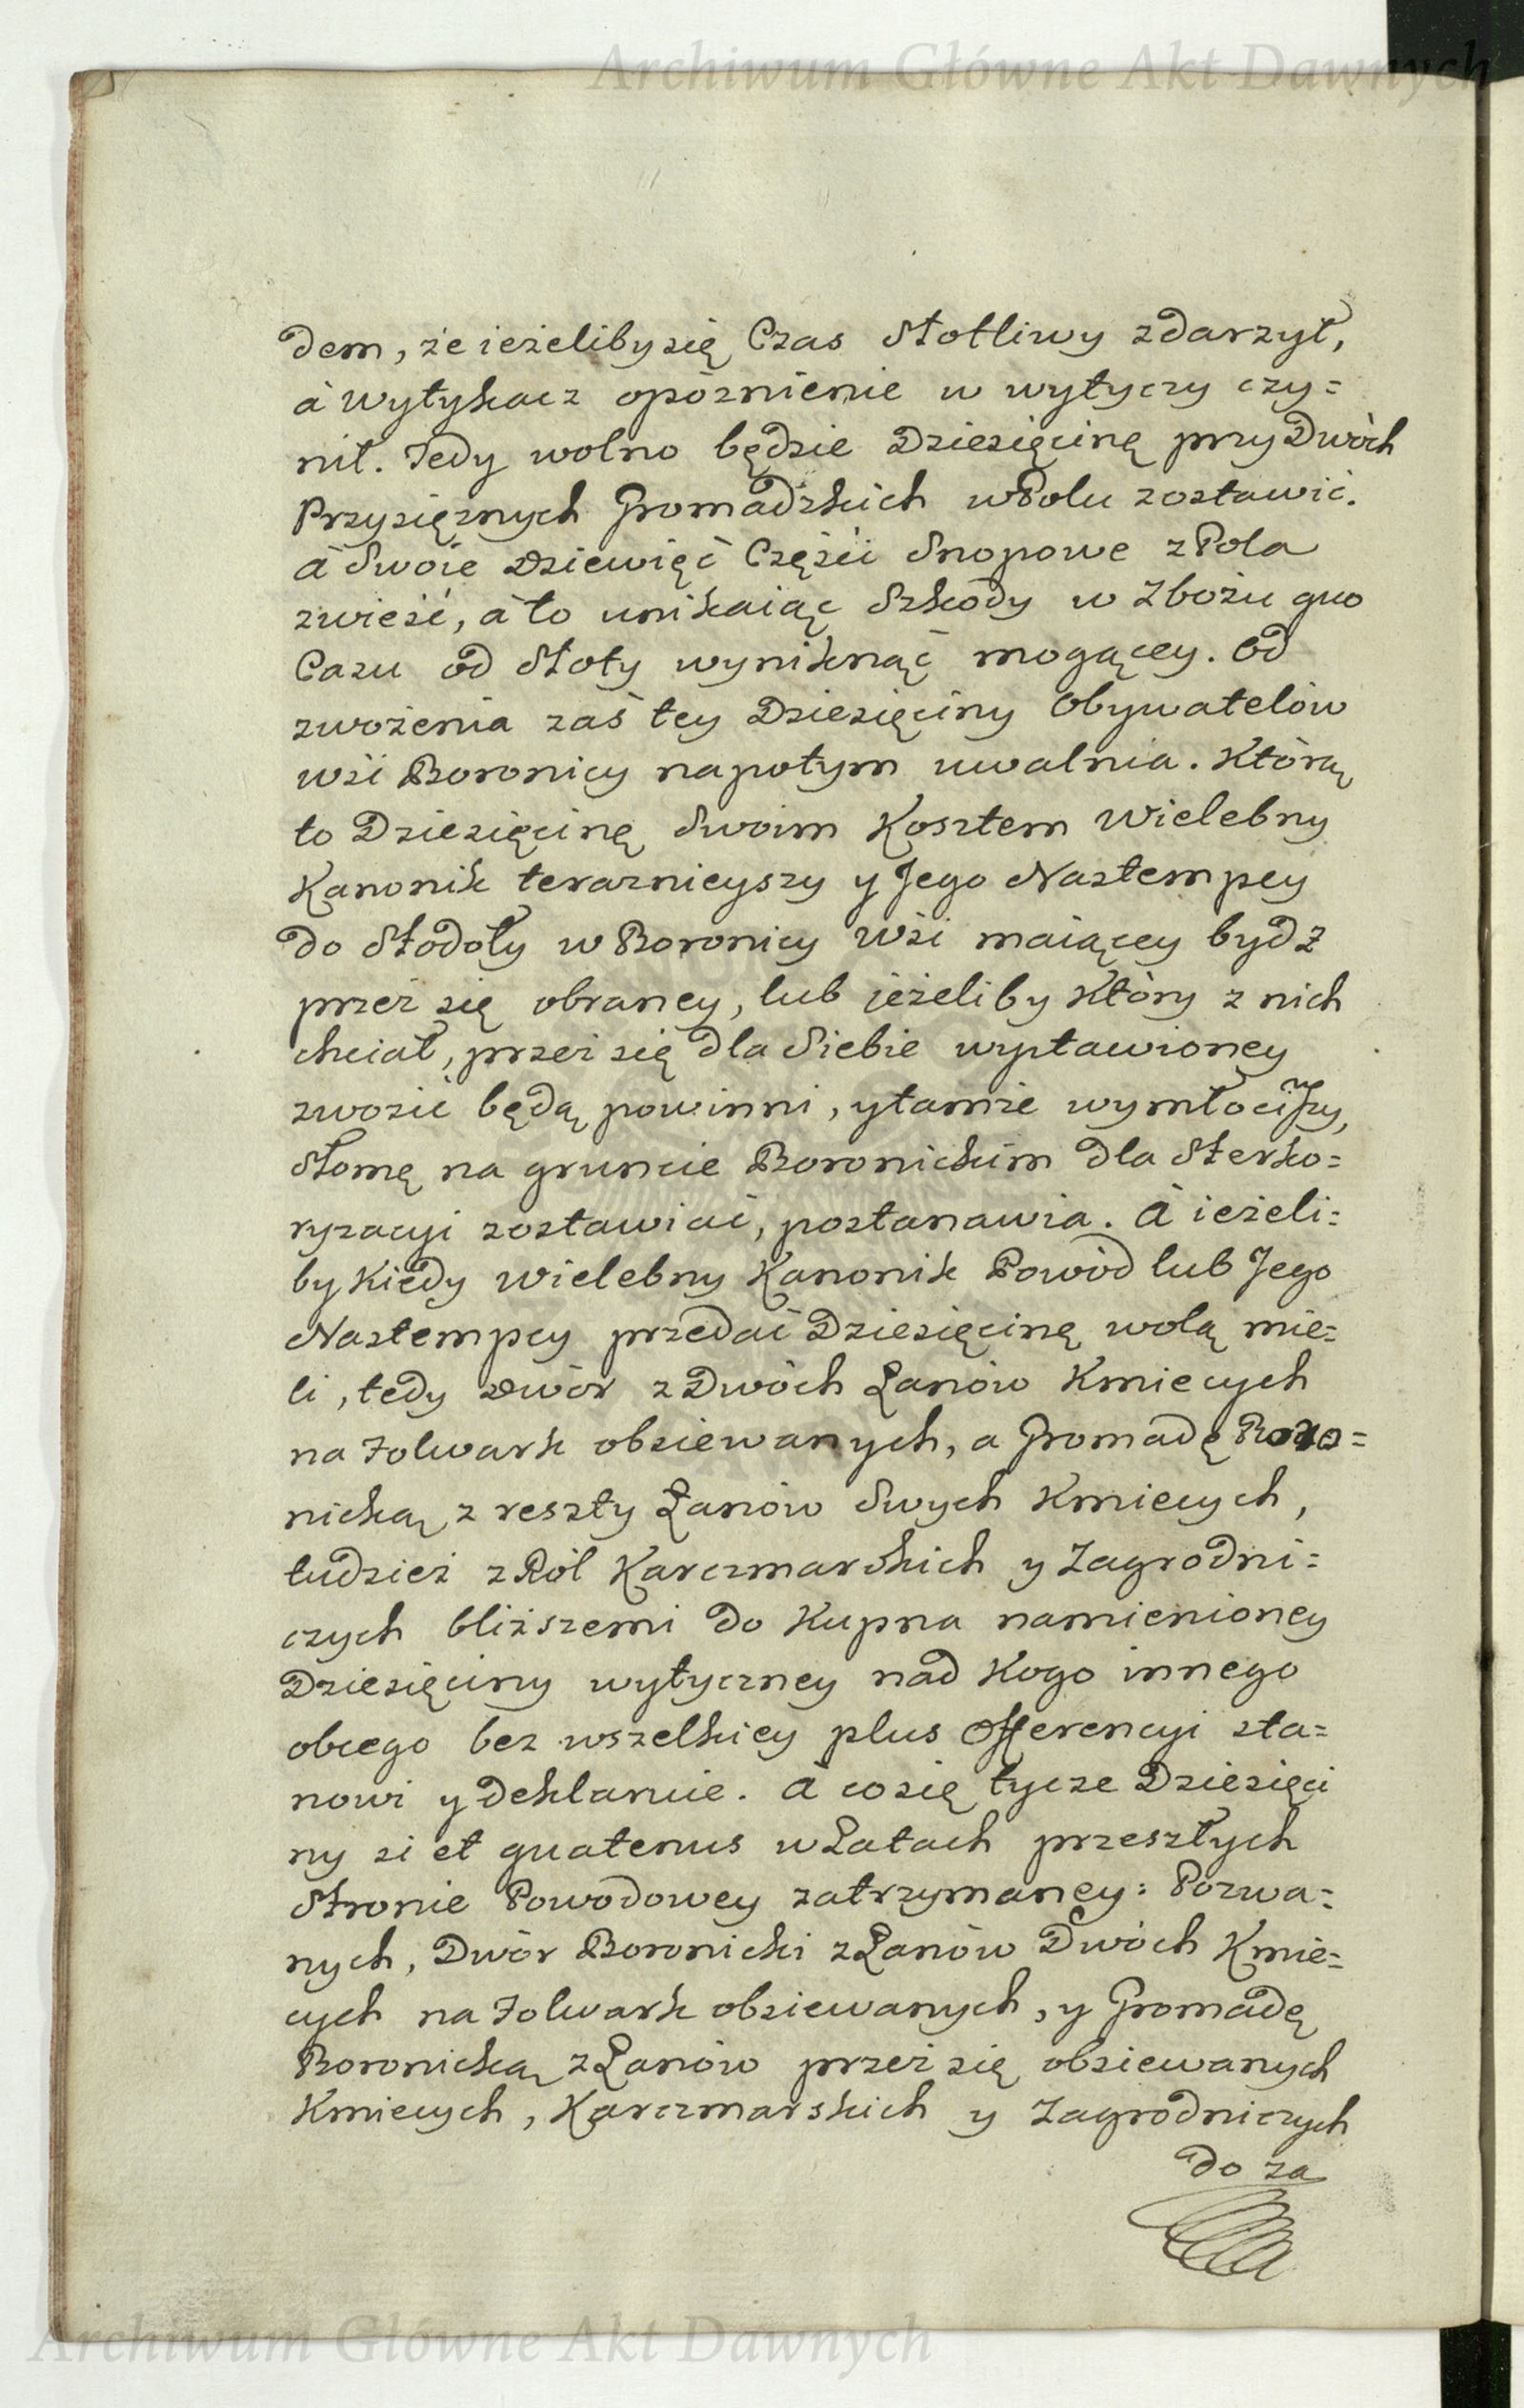 Archiwum Główne Akt Dawnych
dem, że ieżeliby się Czas Słotliwy zdarzył,
á Wytykacz opóznienie w wytyczy czy=
nił. Tedy wolno będzie Dziesięcinę przy Dwóch
Przysięznych Gromadzkich w Polu zostawić.
á Swoie Dziewięć Częśći Snopowe z Pola
zwieść, á to unikaiąc Szkody w Zbożu quo
Casu od Słoty wyniknąć mogącey. Od
zwożenia zaś tey Dziesięciny Obywatelów
wśi Boronicy napotym uwalnia. Którą
to Dziesięcinę Swoim Kosztem Wielebny
Kanonik terazniejszy y Jego Nastempcy
do Stodoły w Boronicy Wśi maiącey bydz
przez się obraney, lub jeżeliby Który z nich
chciał, przez się dla Siebie wystawioney
zwozić będą powinni, y tamże wymłociwszy,
Słomę na gruncie Boronickim dla Sterko=
ryzacyi zostawiać, postanawia. Á ieżeli=
by kiedy Wielebny Kanonik Powód lub Jego
Nastempcy przedać Dziesięcinę wolą mie=
li, tedy Dwór z Dwóch Łanów Kmiecych
na Folwark obsiewanych, a Gromadę Boro=
nicką z reszty Łanów Swych Kmiecych,
tudzież z Ról Karczmarskich y Zagrodni=
czych bliższemi do Kupna namienioney
Dziesięciny wytyczney nad Kogo innego
obcego bez wszelkiey plus Offerencyi sta=
nowi y deklaruie. Á co się tycze Dziesięci
ny si et quatenus w Latach przeszłych
Stronie Powodowey zatrzymaney: Pozwa=
nych, Dwór Boronicki z Łanów Dwóch Kmie=
cych na Folwark obsiewanych, y Gromadę
Boronicką z Łanów przez się obsiewanych
Kmiecych, Karczmarskich y Zagrodniczych
do za
Archiwum Główne Akt Dawnych